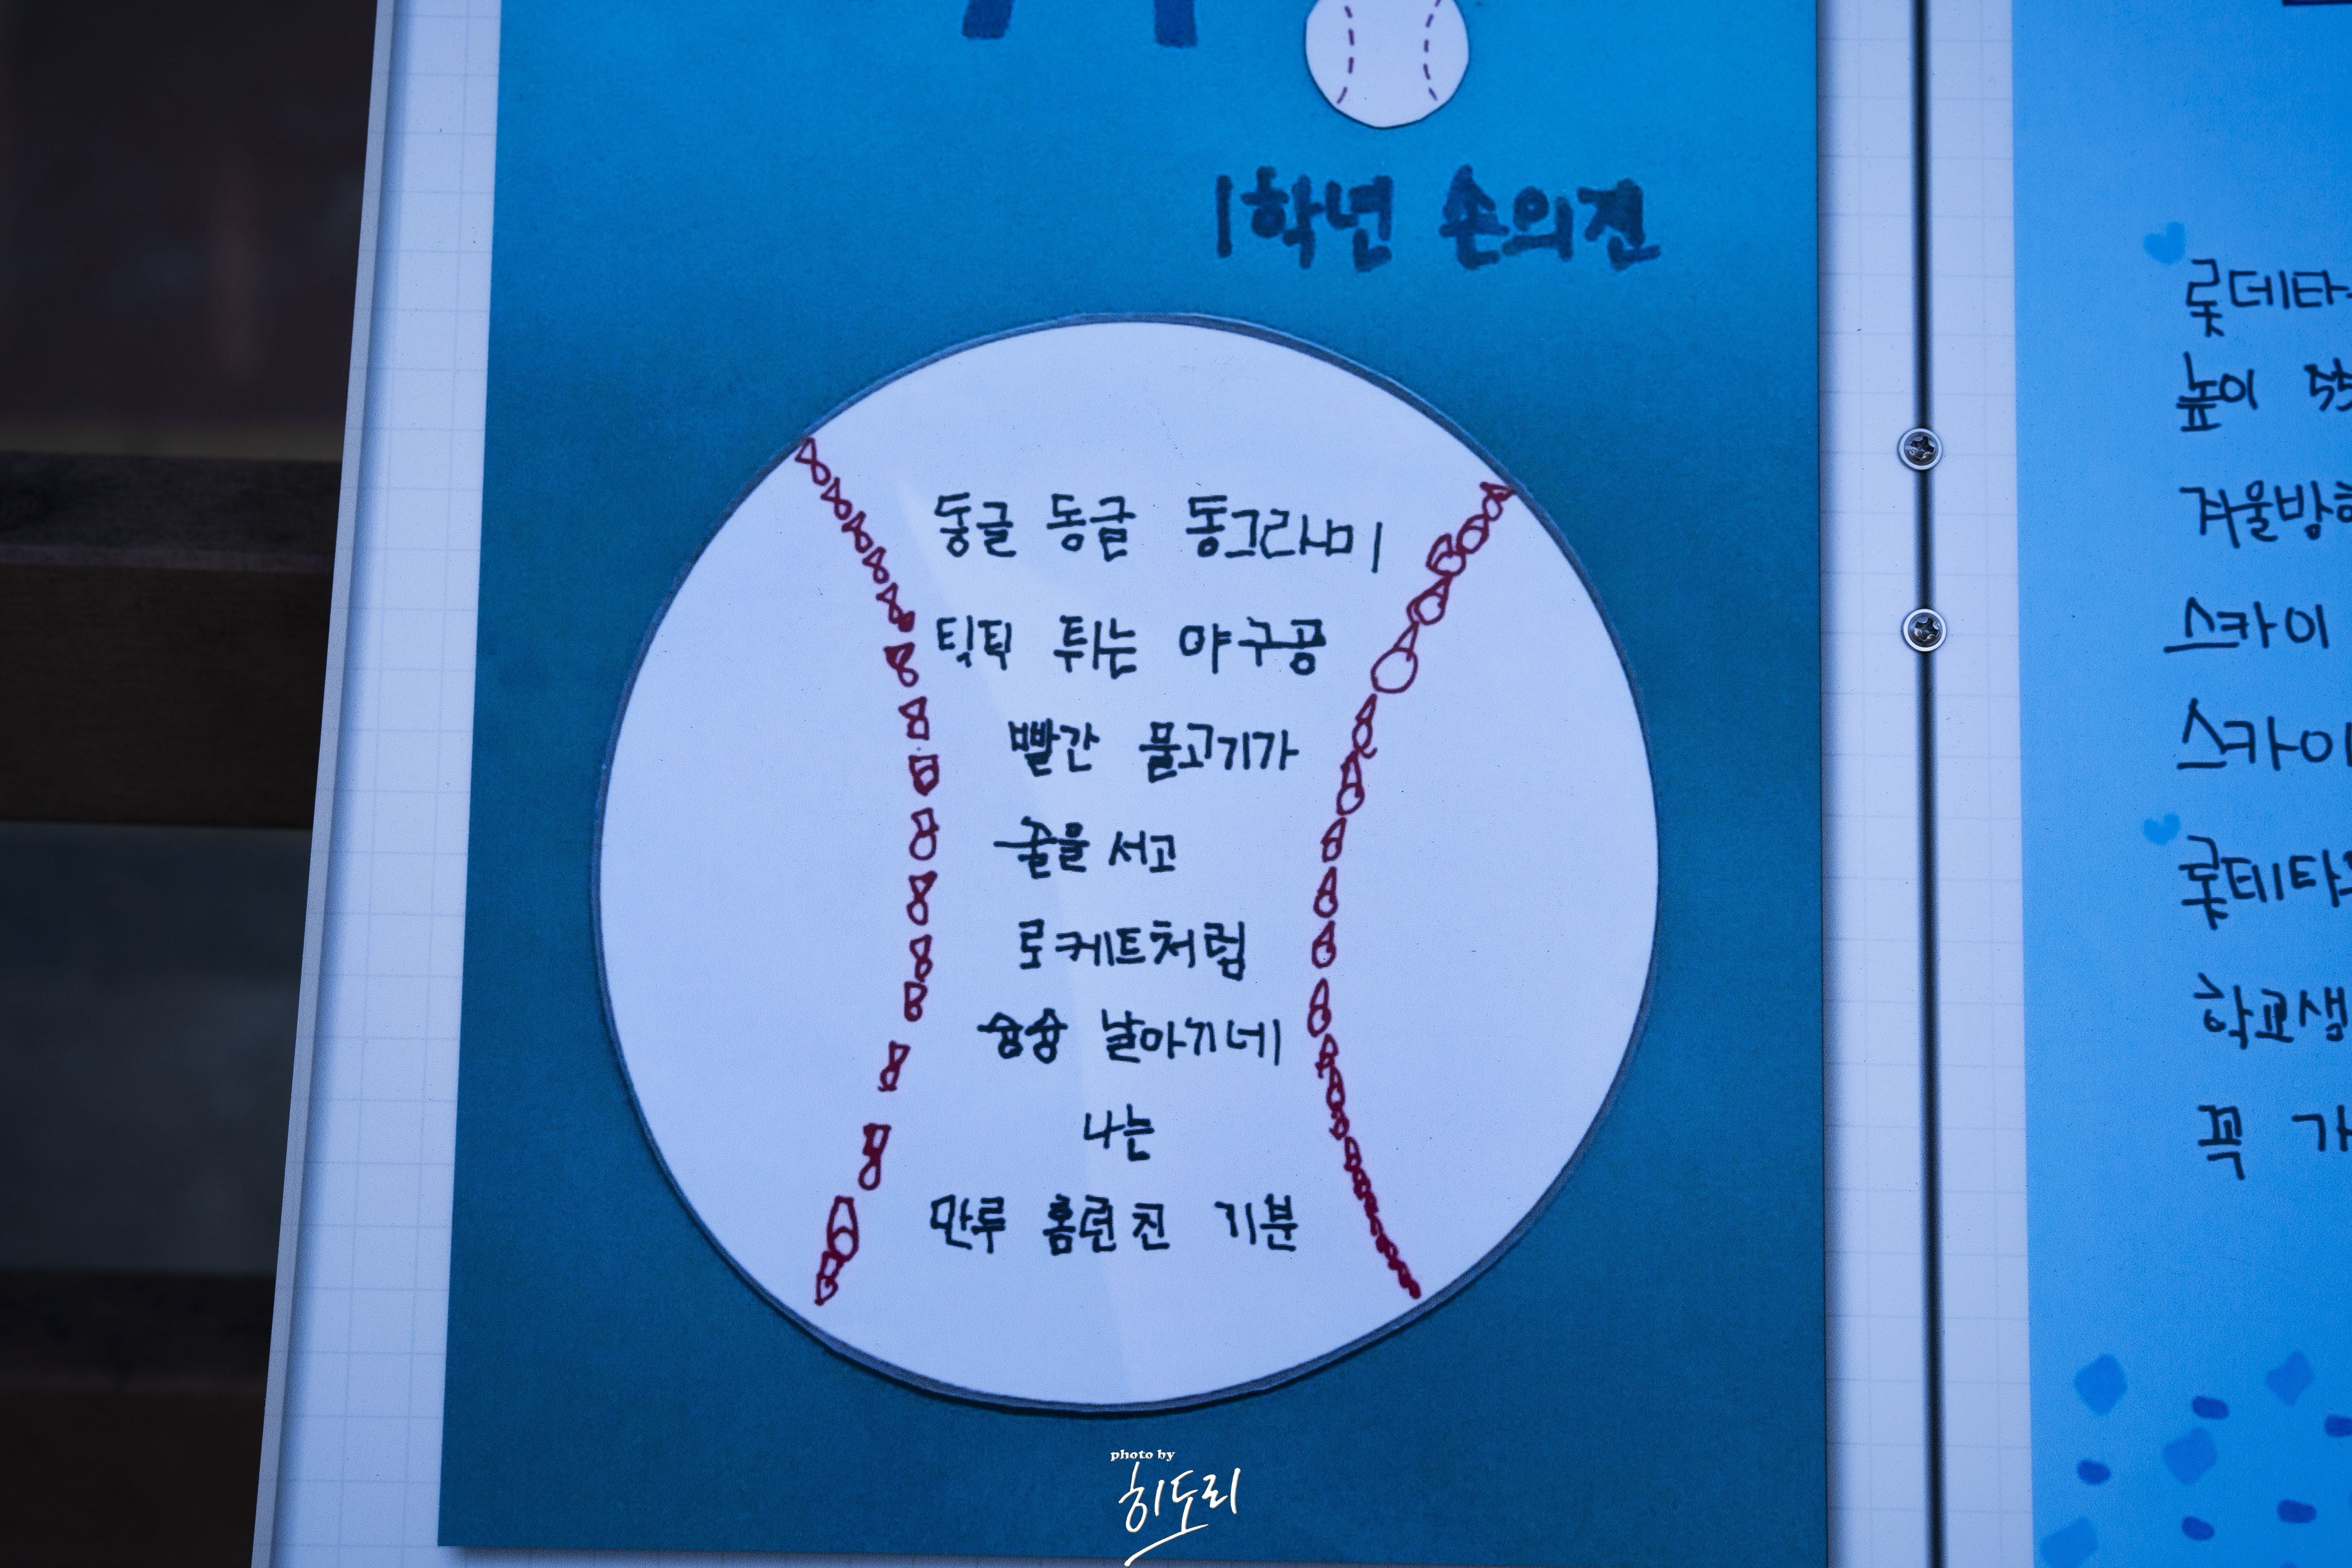 1학년 손의진
둥글 동글 동그라미
틱틱 튀는 야구공
빨간 물고기가
줄을 서고
로케트처럼
슝슝 날아가네
나는
만루 홈런 친 기분
롯데타
높이 55
겨울방학
스카이
스카이
롯데타워
학교생
꼭 가
photo by
히도리